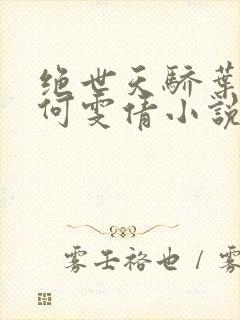 绝世天骄葉
何雯倩小說
雾壬裕也 / 雾